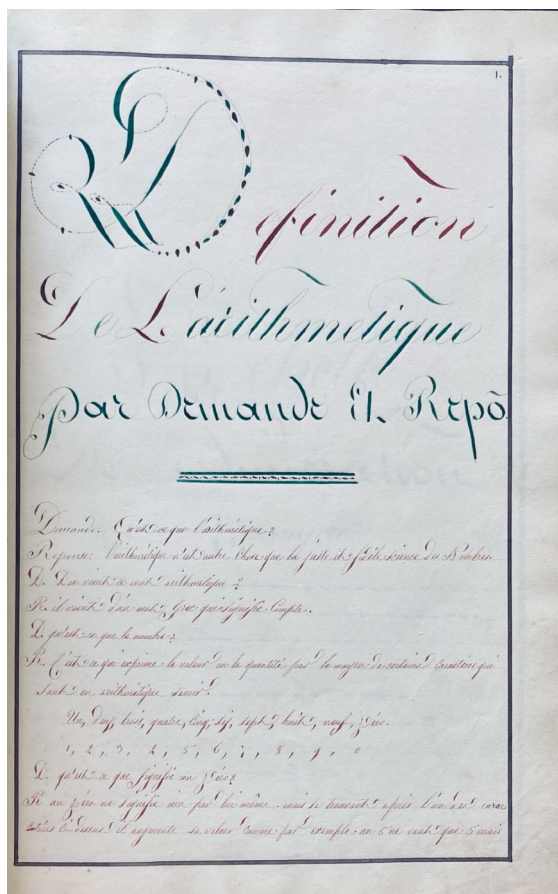 1.
Definition
De L'arithmetique
par Demande Et Repō
Demande. Qu'est ce que l'arithmetique?
Reponse. L'arithmetique n'est autre Chose que la juste et facile science des Nombres.
D. D'ou vient ce mot arithmetique?
R. il vient d'un mot Grec qui signifie Compte.
D. qu'est ce que le nombre?
R. C'est ce qui exprime la valeur ou la quantité par le moyen de certains Caractéres qui
sont en arithmetique savoir.
Un, deux, trois, quatre, Cinq, six, sept, huit, neuf, zéro.
1, 2, 3, 4, 5, 6, 7, 8, 9, 0
D. qu'est ce que signifie un zéro?
R un zéro ne signifie rien par lui même mais se trouvant après l'un des carac
téres Ci dessus il augmente sa valeur Comme par exemple un 5 ne vaut que 5 mais